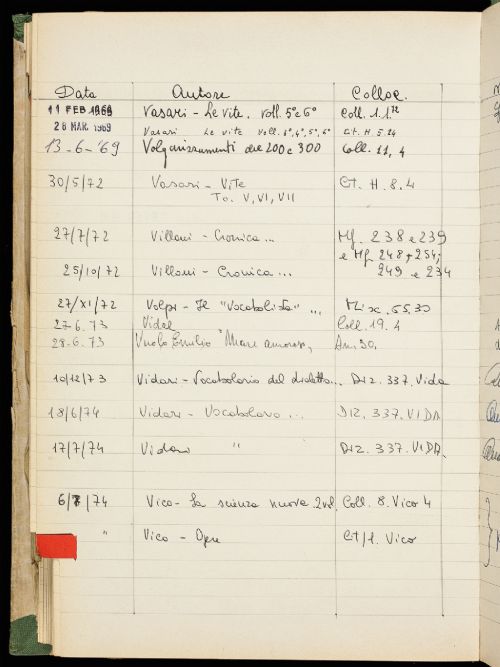 Data Autore Colloc.
11 FEB 1969 Vasari - Le Vite. Voll. 5° e 6° Coll. 1.1.
28 MAR. 1969 Vasari Le vite Voll. 3°, 4°, 5°, 6° Cit. H. 5.24
13-6-'69 Volgarizzamenti del 200 e 300 Coll. 11, 4
30/5/72 Vasari - Vite Cit. H. 8.4
To. V, VI, VII
27/7/72 Villani - Cronica ... Mf. 238 e 239
e Mf. 248 + 254;
25/10/72 Villani - Cronica ... 249 e 254
27/XI/72 Volpi - Il "Vocabolista" ... Misc. 55.30
27.6.73 Vidal Coll. 19.4
28.6.73 Vuolo Emilio "Mare amoroso,
10/12/73 Vidari - Vocabolario del dialetto... Diz. 337. Vida
18/6/74 Vidari - Vocabolario ... DIZ. 337. VIDA
17/7/74 Vidari " Diz. 337. VIDA.
6/8/74 Vico - La scienza nuova. 2 vol. Coll. 8. Vico 4
" Vico - Opere Cit/1. Vico